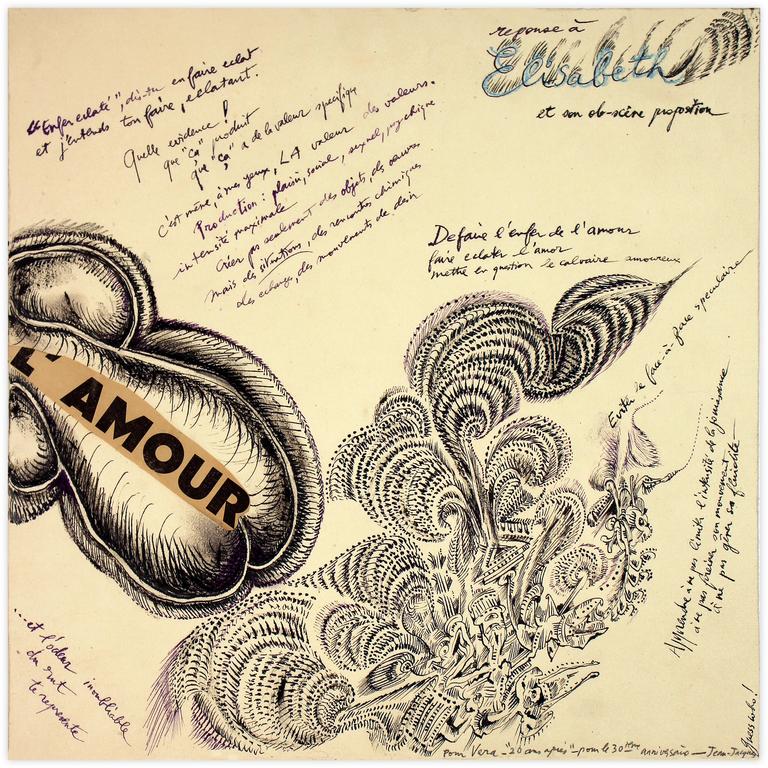 réponse à
Elisabeth
et son ob-scène proposition
"Enfer eclaté", dis-tu en faire eclat
et j'entends ton faire, eclatant.
Quelle evidence !
que "ça" produit
que "ça" a de la valeur spécifique
c'est même, à mes yeux, LA valeur des valeurs.
Production : plaisir, social, sexuel, psychique
intensité maximale
Créer pas seulement des objets, des oeuvres
mais des situations, des rencontres chimiques
des echanges, des mouvements de desir
Defaire l'enfer de l'amour
faire eclater l'amor
mettre en question le calvaire amoureux
Eviter le face-à-face speculaire
Apprendre à ne pas limiter l'intensité de la jouissance
à ne pas freiner son mouvement
à ne pas gérer sa fluidité
L'AMOUR
...et l'odeur inoubliable
du rut
te represente
Pour Vera - "20 ans après" - pour le 30ème anniversario - Jean-Jacques
guess who!